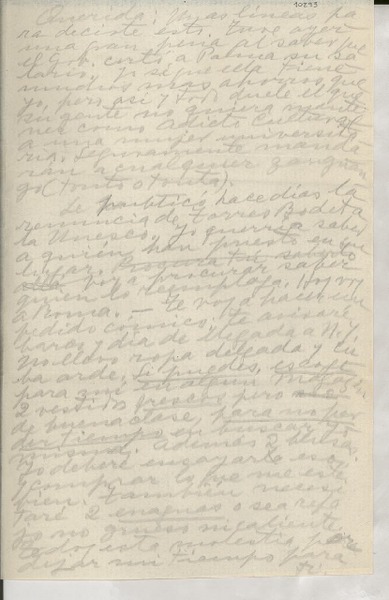 10295
Querida: Unas líneas pa
ra decirte esto. Tuve ayer
una gran pena al saber que
el Gob. cortó a Palma su sa
lario. Yo sé que ella tiene
muchos más ahorros que
yo, pero así y todo duele el que
su gente no quiera mante
ner como Adicto Cultural
a una mujer universita
ria. Seguramente manda
rán a cualquier zángan
go (tonto o tonta).
Se publicó hace días la
renuncia de Torres Bodet a
la Unesco. Yo quería saber
a quién han puesto en su
lugar.
voy a procurar saber
quien lo reemplaza. Hoy voy
a Roma. — Te voy a hacer un
pedido cómico. Te avisaré
barco y día de llegada a N.Y.
No llevo ropa delgada y Cu
ba arde. Si puedes, escoge
para mí en algún Magazin
2 vestidos frescos pero
de buena clase, para no per
der tiempo en buscar yo
misma. Además 2 blusas.
Yo deberé ensayarlo eso
y comprar lo que me esté
bien. También necesi
taré 2 enaguas o sea refa
jo no grueso ni caliente.
Todo esta molestia por
dejar mi tiempo para
ti.